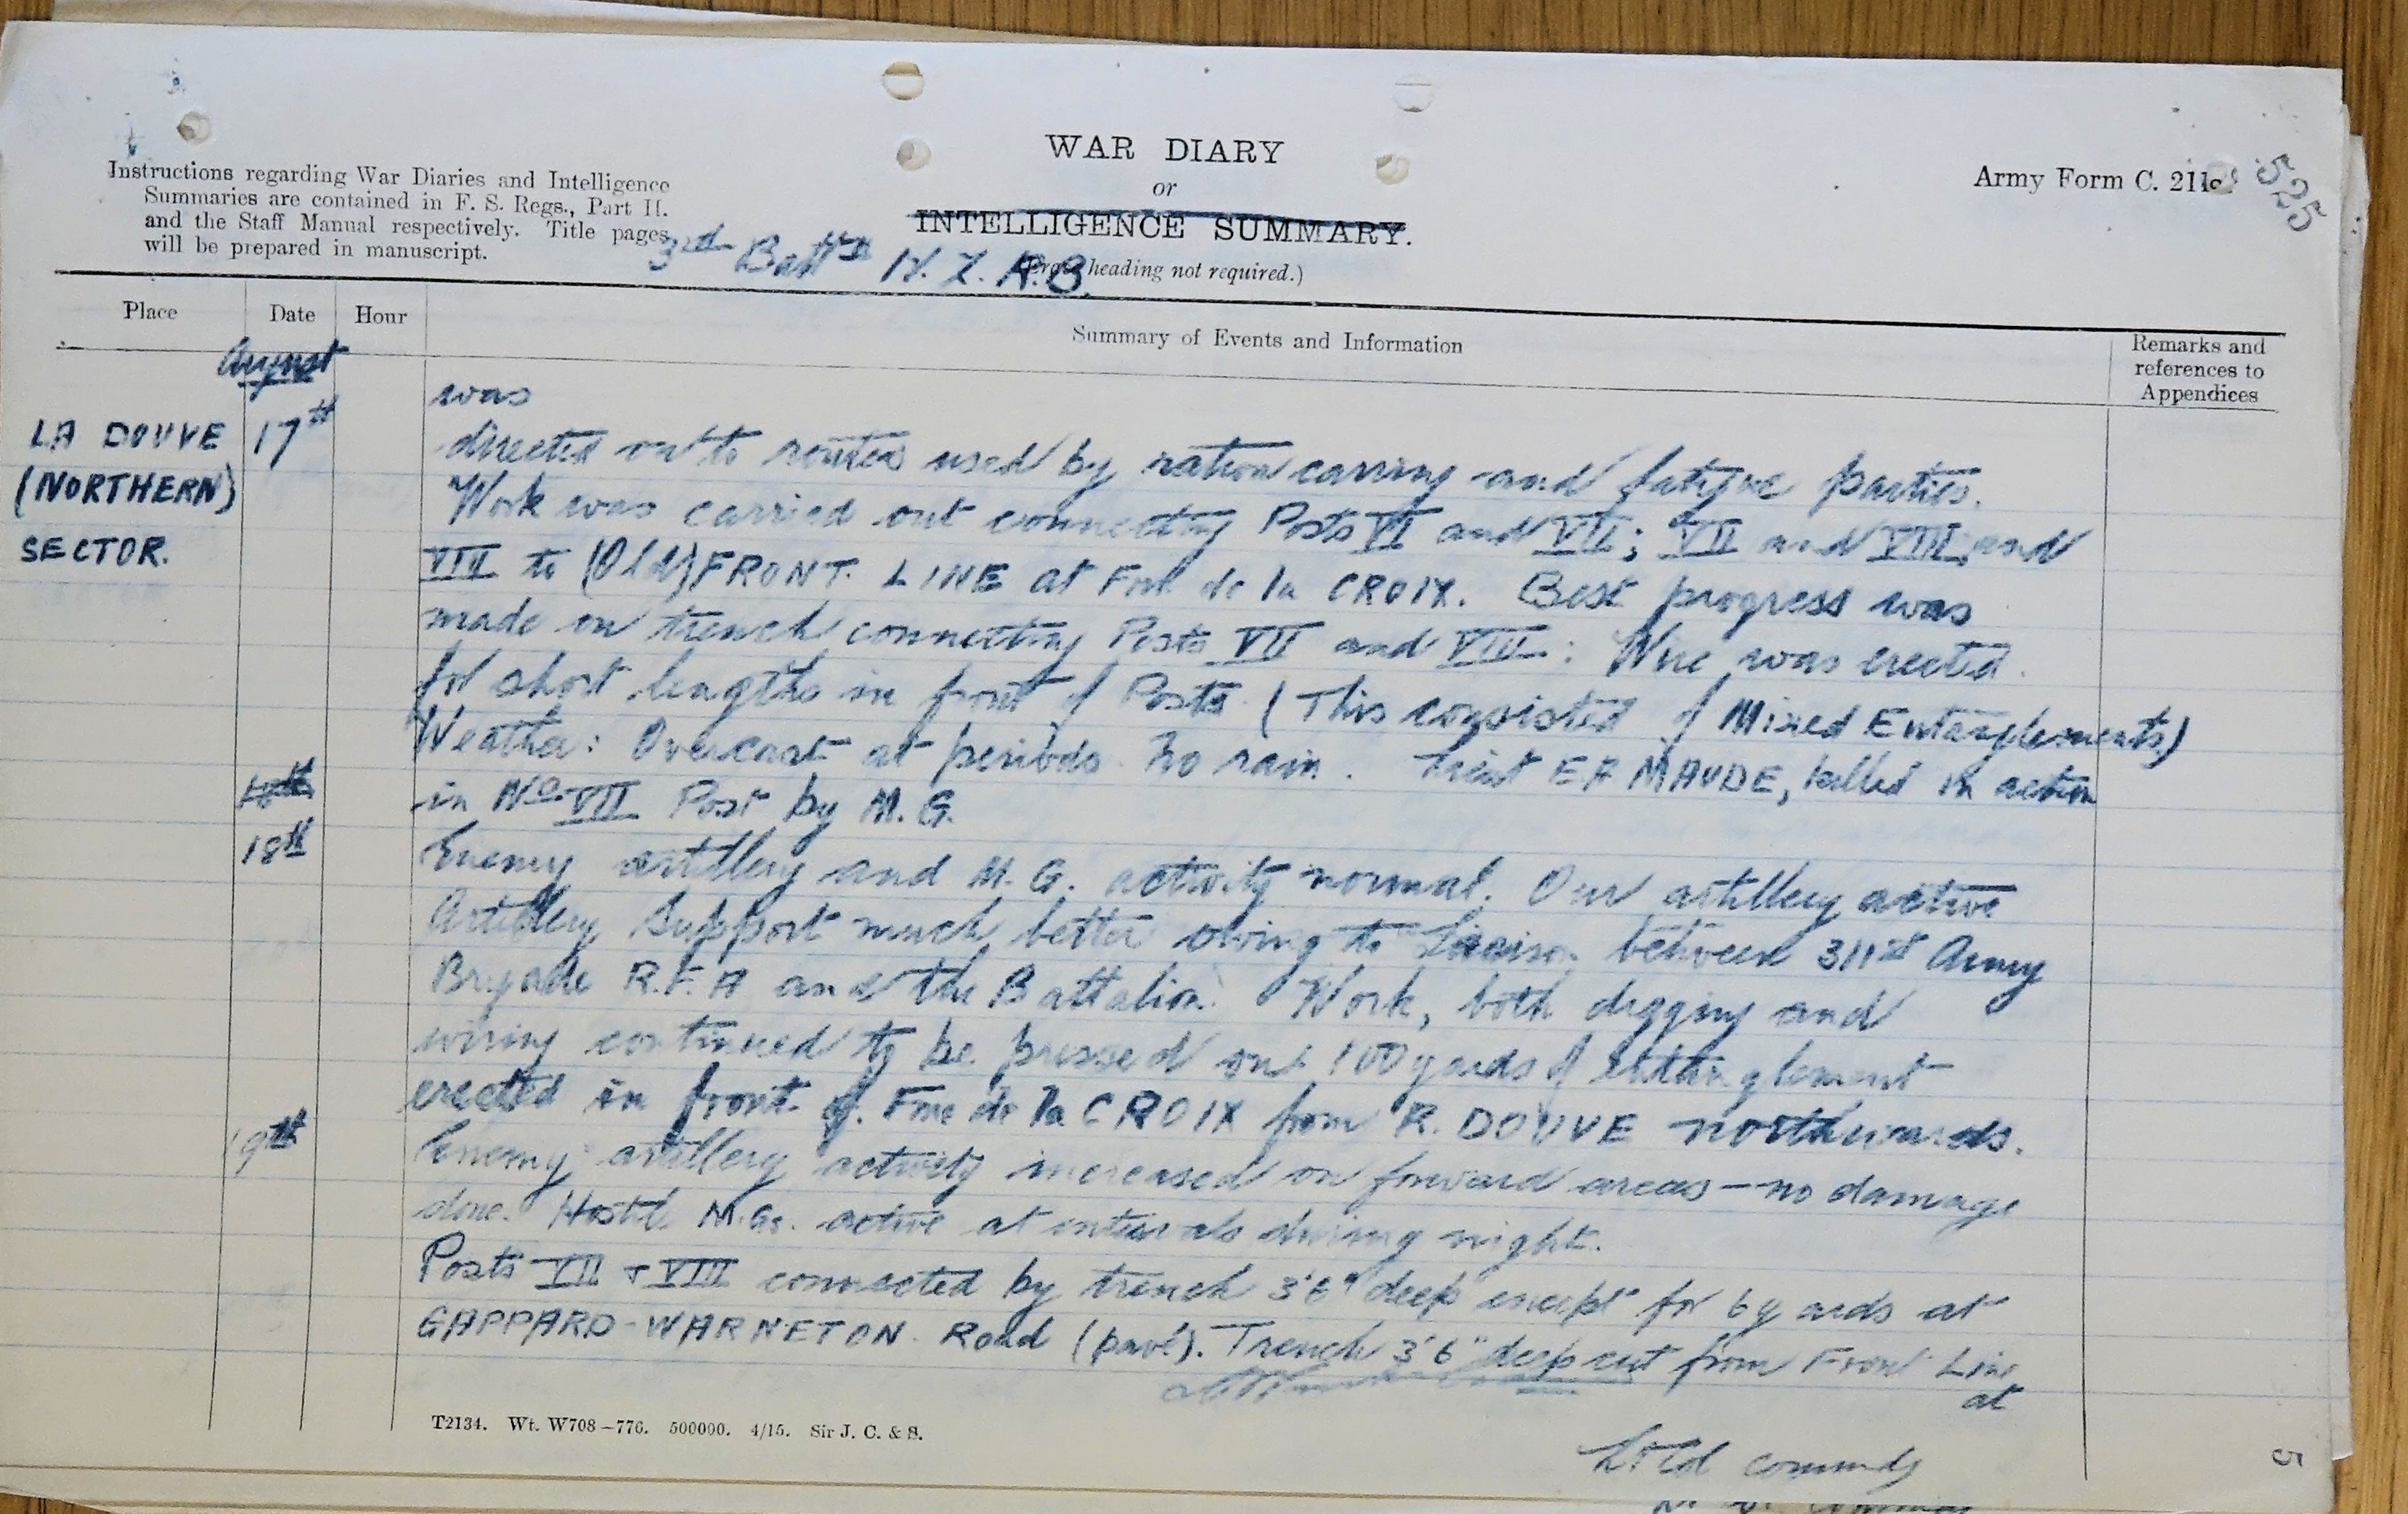 Instructions regarding War Diaries and Intelligence
Summaries are contained in F. S. Regs., Part II.
and the Staff Manual respectively. Title pages
will be prepared in manuscript.
WAR DIARY
or
INTELLIGENCE SUMMARY.
(Erase heading not required.)
3rd Battn N. Z. R.B.
Army Form C. 2118
525
Place
Date
Hour
Summary of Events and Information
Remarks and
references to
Appendices
August
LA DOUVE
(NORTHERN)
SECTOR.
17th
was
directed on to routes used by ration carrying and fatigue parties.
Work was carried out connecting Posts VI and VII; VII and VIII and
VIII to (Old) FRONT LINE at Fme de la CROIX. Best progress was
made on trench connecting Posts VII and VIII: Wire was erected
for short lengths in front of Posts (This consisted of Mixed Entanglements)
Weather: Overcast at periods. No rain. Lieut E F MAUDE, killed in action
in No VII Post by M.G.
18th
18th
Enemy artillery and M.G. activity normal. Our artillery active
Artillery Support much better owing to Liaison between 311st Army
Brigade R.F.A and the Battalion. Work, both digging and
wiring continued to be pressed on. 100 yards of entanglement
erected in front of Fme de la CROIX from R. DOUVE northwards.
19th
Enemy artillery activity increased on forward areas — no damage
done. Hostile M.Gs. active at intervals during night.
Posts VII + VIII connected by trench 3'6" deep except for 6 yards at
GAPPARD-WARNETON Road (pavé). Trench 3'6" deep cut from Front Line
at
T2134. Wt. W708—776. 500000. 4/15. Sir J. C. & S.
Lt Col commdg
5